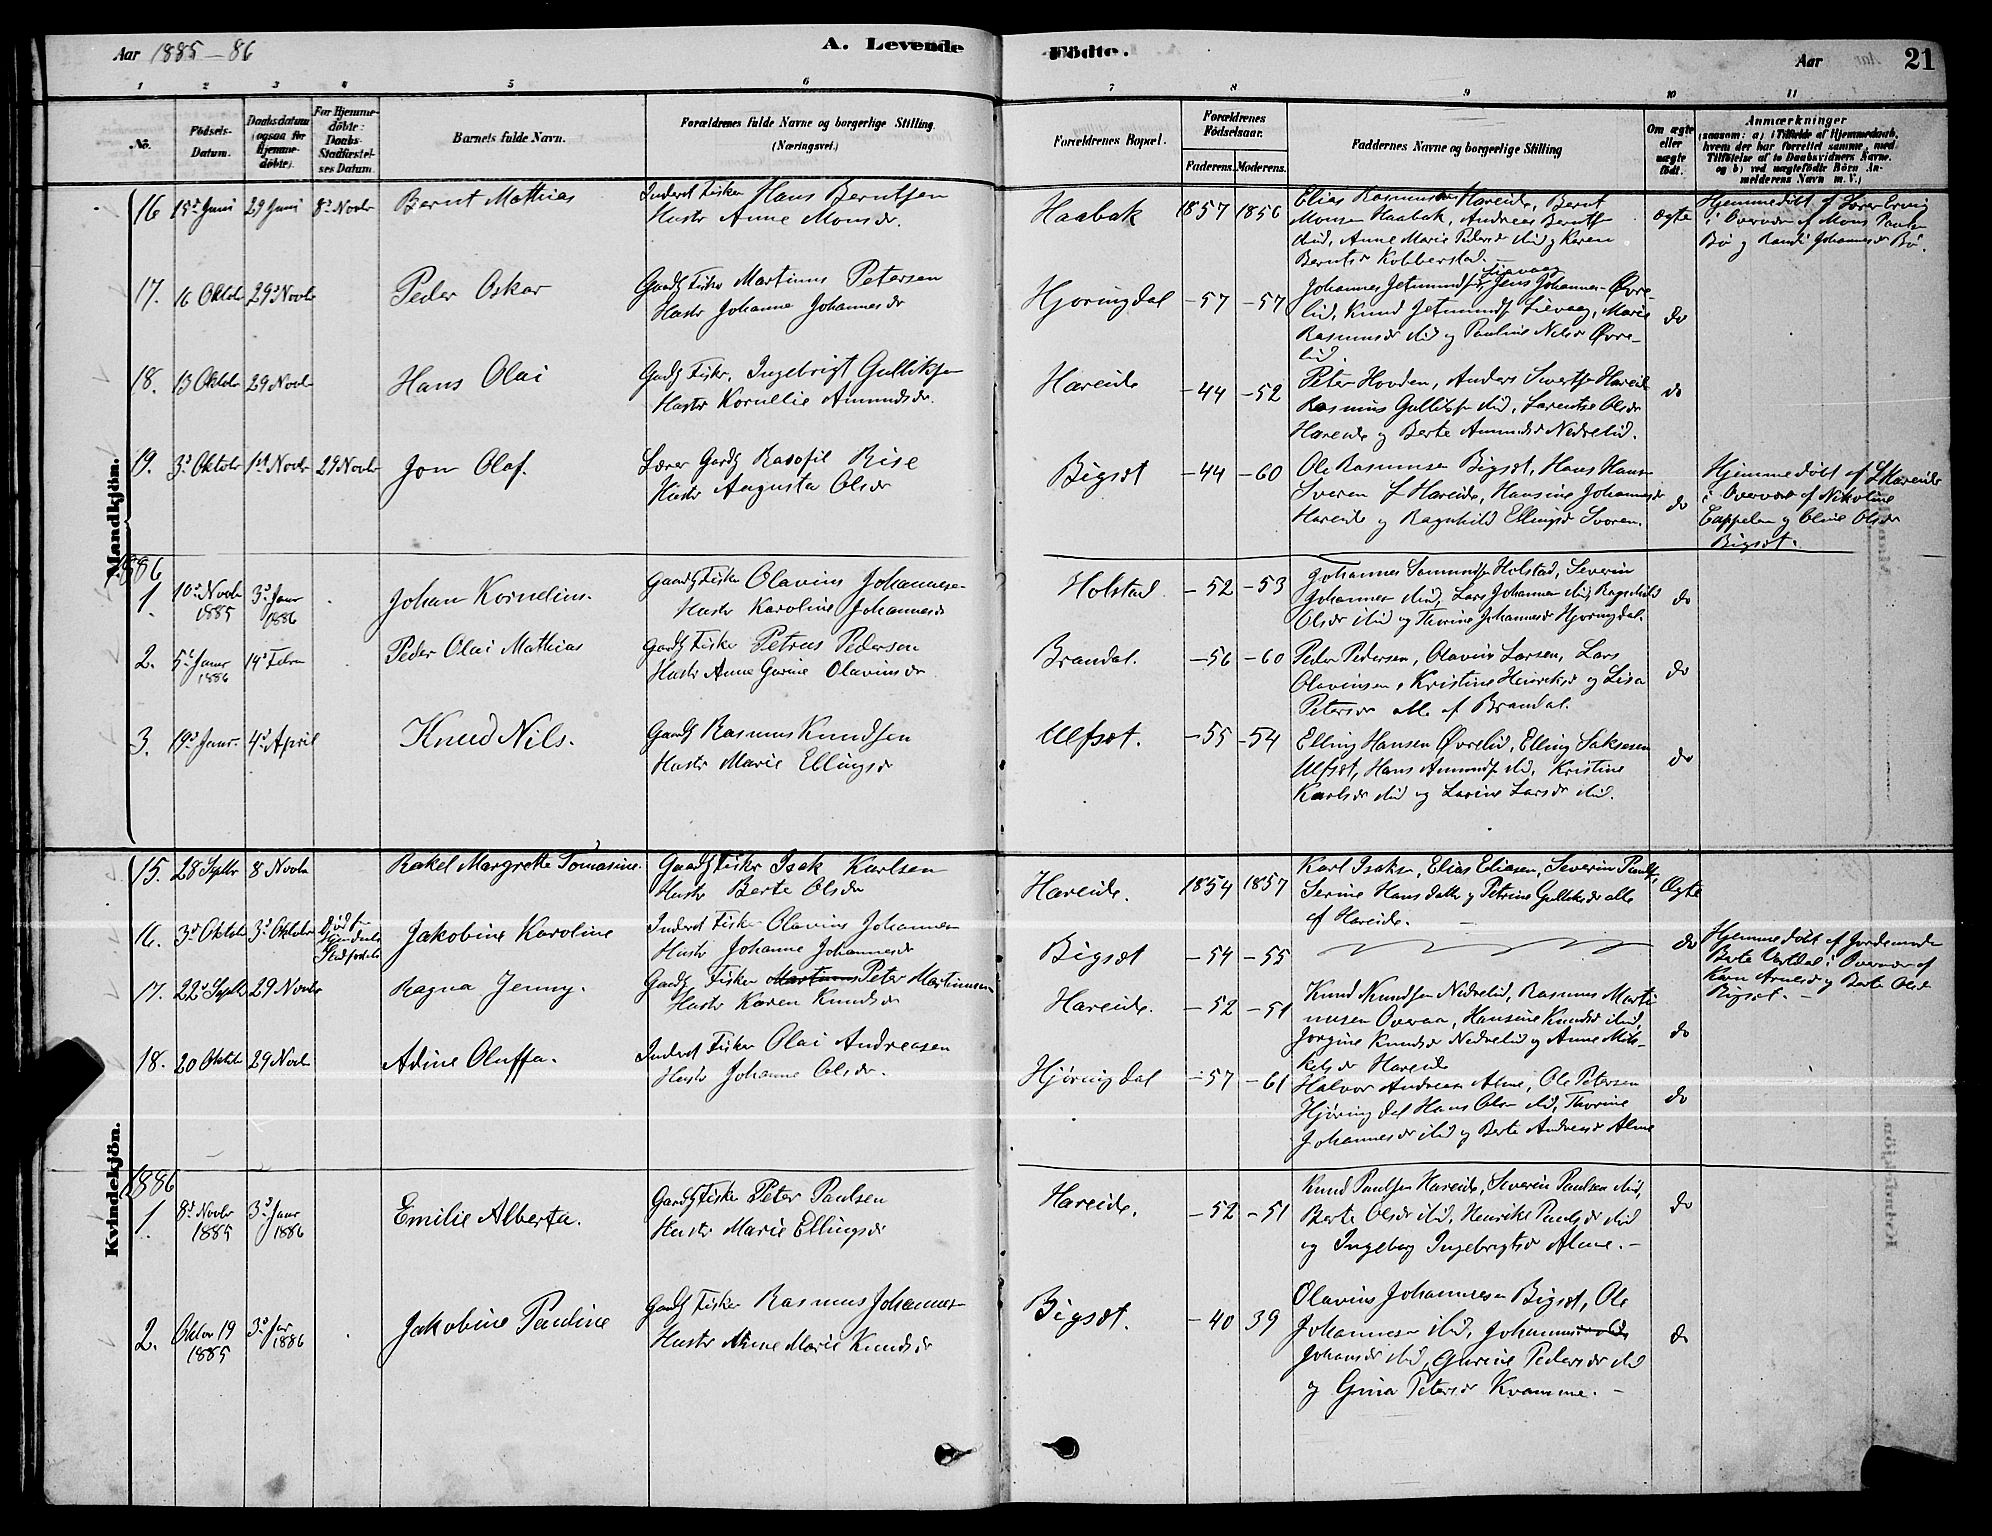 Aar 1885-86
A. Levende
Födte.
Aar
21
1
2
3
4
5
6
7
8
9
10
11
No.
Födsels-
Datum.
Daabsdatum
(ogsaa for
Hjemme-
döbte).
For Hjemme-
döbte:
Daabs-
Stadfæstel-
ses Datum.
Barnets fulde Navn.
Forældrenes fulde Navne og borgerlige Stilling
(Næringsvei.)
Forældrenes Bopæl.
Forældrenes
Födselsaar.
Faderens. Moderens.
Faddernes Navne og borgerlige Stilling
Om ægte
eller
uægte
født.
Anmærkninger
(saasom: a) i Tilfælde af Hjemmedaab,
hvem der har forrettet samme, med
Tilföielse af to Daabsvidners Navne,
og b) ved uægtefödte Börn An-
melderens Navn m. V.)
Mandkjön.
16 15d Juni 29 Juni 8d Novbr Bernt Mathias
Inderst Fisker Hans Berntsen
Hustr Anne Monsdr.
Haabak 1857 1856
Elias Rasmussen Hareide, Bernt
Monsen Haabak, Andreas Berntsen
ibid, Anne Marie Pedersdr ibid og Karen
Berntsdr Kobberstad.
ægte
Hjemmedöbt af Lærer
i Overvær af Mons Paulsen
Bø og Randi Johannesdr Bø.
17. 16 Oktobr 29d Novbr Peder Oskar
Gaardb Fisker Martinus Petersen
Hustr Johanne Johannesdr
Hjoringdal -57 -57
Liavaag
Johannes Jetmundsen, Jens Johannesen Øvre-
lid, Knud Jetmunds Liavaag, Marie
Rasmusdr ibid og Pauline Nilsdr Øvre-
lid.
do
18. 13 Oktobr 29 Novbr Hans Olai
Gaardb Fisker, Ingebrigt Gulliksen
Hustr Kornelie Amundsdr.
Hareide -44 -52
Peter Hovden, Anders Sivertsen Hareide
Rasmus Gulliksen ibid, Larentse Olsdr
Hareide og Berte Amundsdr Nedrelid.
do
19. 3d Oktobr 1st Novbr 29 Novbr Jon Olaf.
Lærer Gardb Rasofil Rise
Hustr Augusta Olsdr
Bigsæt -44 -60
Ole Rasmusen Bigsæt, Hans Hansen
Sveren L Hareide, Hansine Johannesdr
Hareide og Ragnhild Ellingsdr Svoren.
do
Hjemmedöbt af L Hareide
i Overvær af Nikoline
Cappelen og Oline Olsdr
Bigsæt.
1886
1. 10d Novbr 1885 3d Janr 1886 Johan Kornelius.
Gaardb Fisker Olavius Johannesen
Hustr Karoline Johannesdr
Holstad. -52 -53
Johannes Samundsen Holstad, Severin
Johannesen ibid, Lars Johannesen ibid, Ragnhild
Olsdr ibid og Thorine Johannesdr Hjoringdal.
do
2. 5d Janr 1886 14d Febr Peder Olai Mathias
Gardb Fisker Petrus Pederson
Hustr Anne Gurine Olavinsdr
Brandal. -56 -60
Peder Pedersen, Olavius Larsen, Lars
Olavinsen, Kristine Henriksdr og Lisa
Petersdr alle af Brandal.
do
3. 19d Janr. 4d April Knud Nils.
Gardb Rasmus Knudsen
Hustr Marie Ellingsdr
Ulfsæt. -55 -54
Elling Hansen Øvrelid, Elling Saksesen
Ulfsæt, Hans Amundsen ibid, Kristine
Karlsdr ibid og Lovine Larsdr ibid.
do
Kvindekjön.
15. 28 Septbr 8 Novbr Rakel Margrethe Tomasine.
Gaardb Fisker Isak Karlsen
Hustr Berte Olsdr
Hareide. 1854 1857
Karl Isaksen, Elias Eliasen, Severin Paulsen,
Serine Hansdatter og Petrine Gulliksdr alle
af Hareide.
Ægte
16. 3d Oktobr 3d Oktobr Jakobine Karoline
Inderst Fisker Olavius Johannesen
Hustr Johanne Johannesdr
Bigsæt -54 -55
do
Hjemmedöbt af Jordemoder
Berte Vartdal i Overvær af
Karn Arnesdr og Berte Olsdr
Bigsæt. -
17. 22d Septbr 29 Novbr Ragna Jenny.
Gardb Fisker Martinus Peter Martinusen
Hustr Karen Knudsdr
Hareide. -52 -51
Knud Knudsen Nedrelid, Rasmus Marti
nusen Overaa, Hansine Knudsdr ibid,
Jorgine Knudsdr Nedrelid og Anne Mik-
kelsdr Hareide
do
18. 20 Oktobr 29 Novbr Adine Oluffa.
Inderst Fisker Olai Andreasen
Hustr Johanne Olsdr.
Hjøringdal -57 -61
Halvor Andreasen Alme, Ole Petersen
Hjøringdal Hans Olsen ibid, Thorine
Johannesdr ibid og Berte Andreasdr Alme
do
1886
1. 8d Novbr 1885 3d Janr 1886 Emilie Alberta.
Gardb Fisker Peter Paulsen
Hustr Marie Ellingsdr
Hareide. -52 -51
Knud Paulsen Hareide, Severin Paulsen ibid,
Berte Olsdr ibid, Henrike Paulsdr ibid
og Ingeborg Ingebrigtsdr Alme. -
do
2. Oktbr 19 1885 3d Jar 1886 Jakobine Pauline
Gardb Fisker Rasmus Johannesen
Hustr Anne Marie Knudsdr
Bigsæt. -40 39
Olavius Johannesen Bigsæt, Ole
Johannesen ibid, Johanne
Johansdr ibid, Gurine Pedersdr ibid
og Gina Petersdr Kvamme. -
do